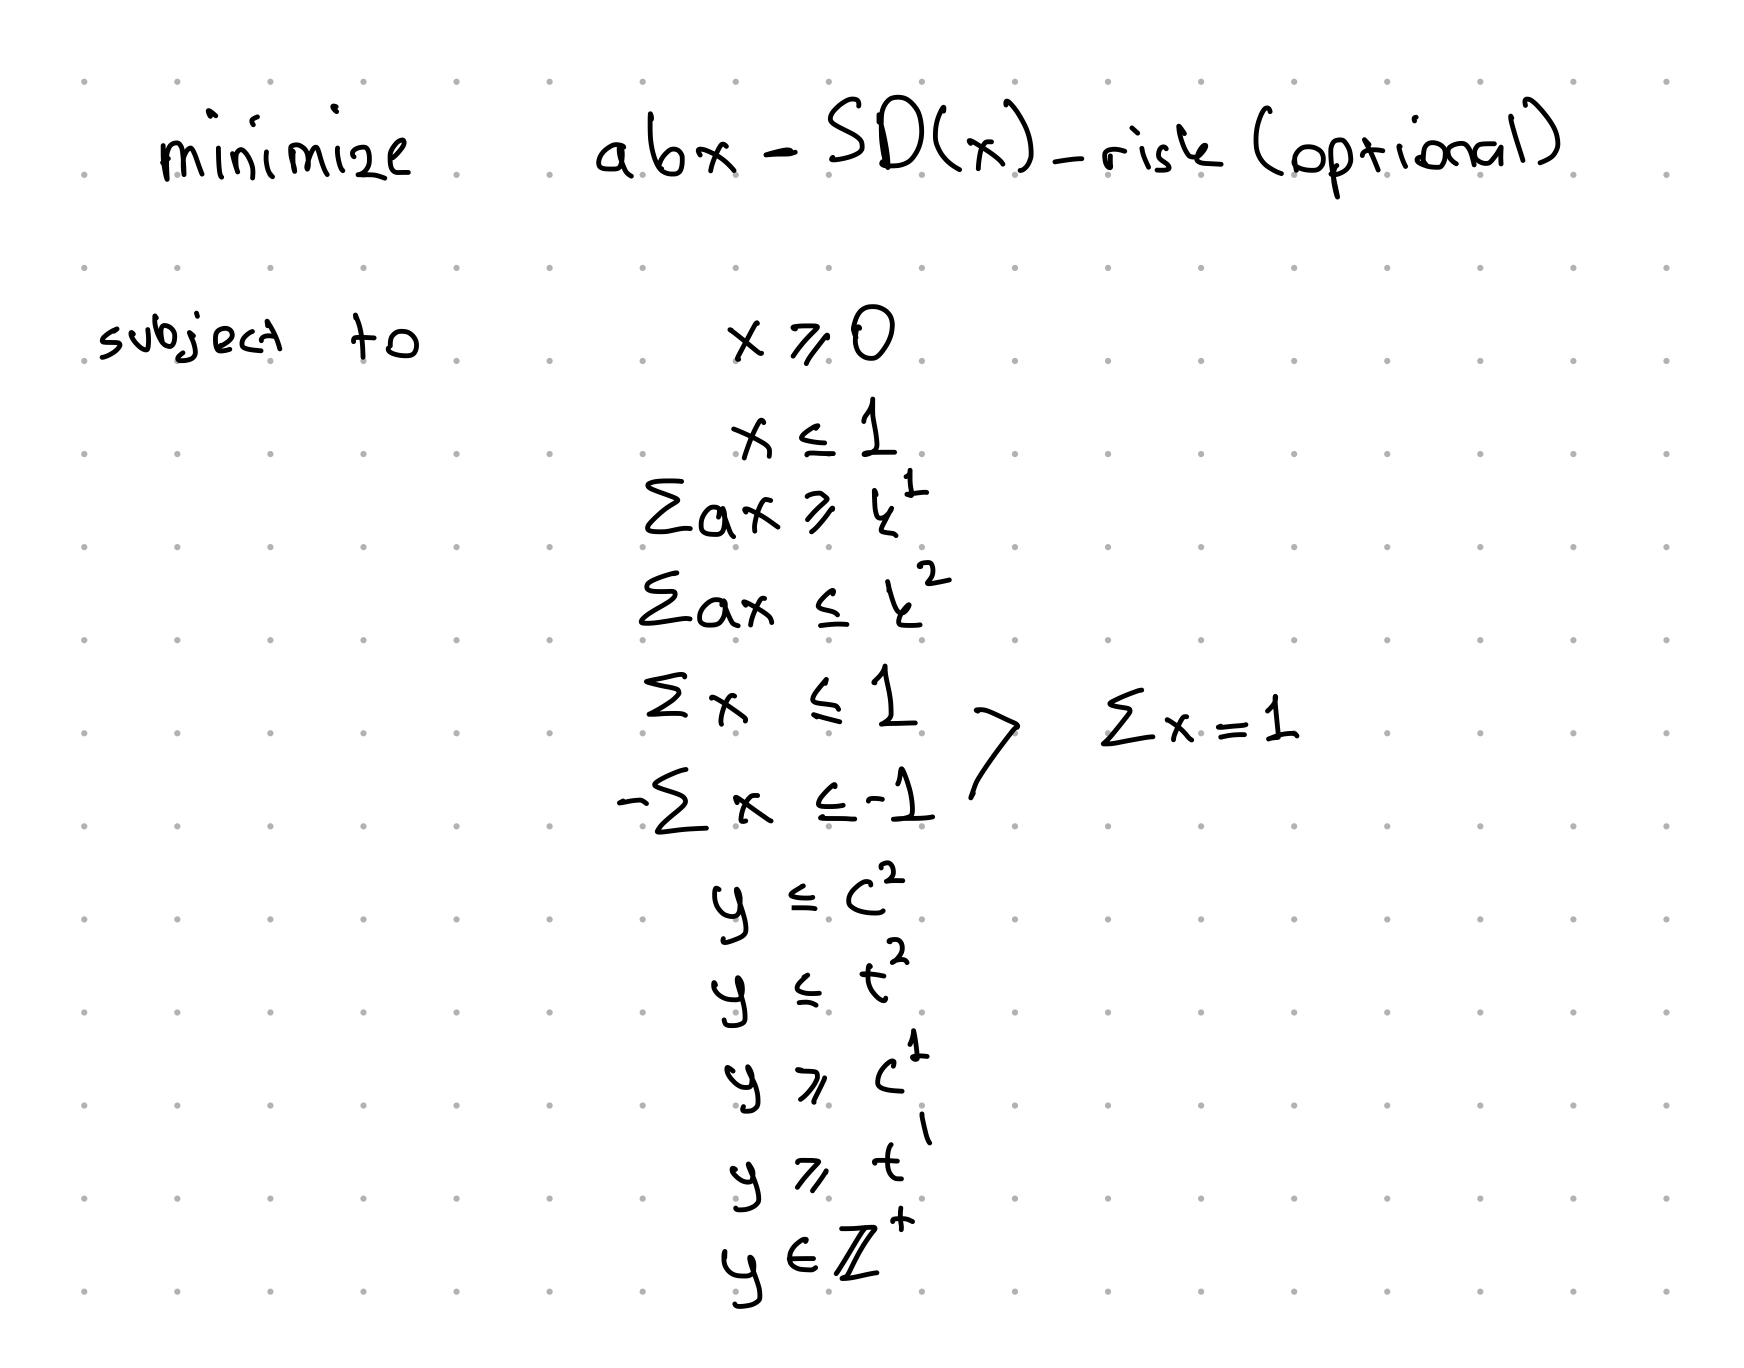 minimize abx - SD(x) - risk (optional)
subject to x ⩾ 0
x ≤ 1
Σax ⩾ k¹
Σax ≤ k²
Σx ≤ 1
Σx = 1
-Σx ≤ -1
y ≤ c²
y ≤ t²
y ⩾ c¹
y ⩾ t¹
y ∈ ℤ⁺